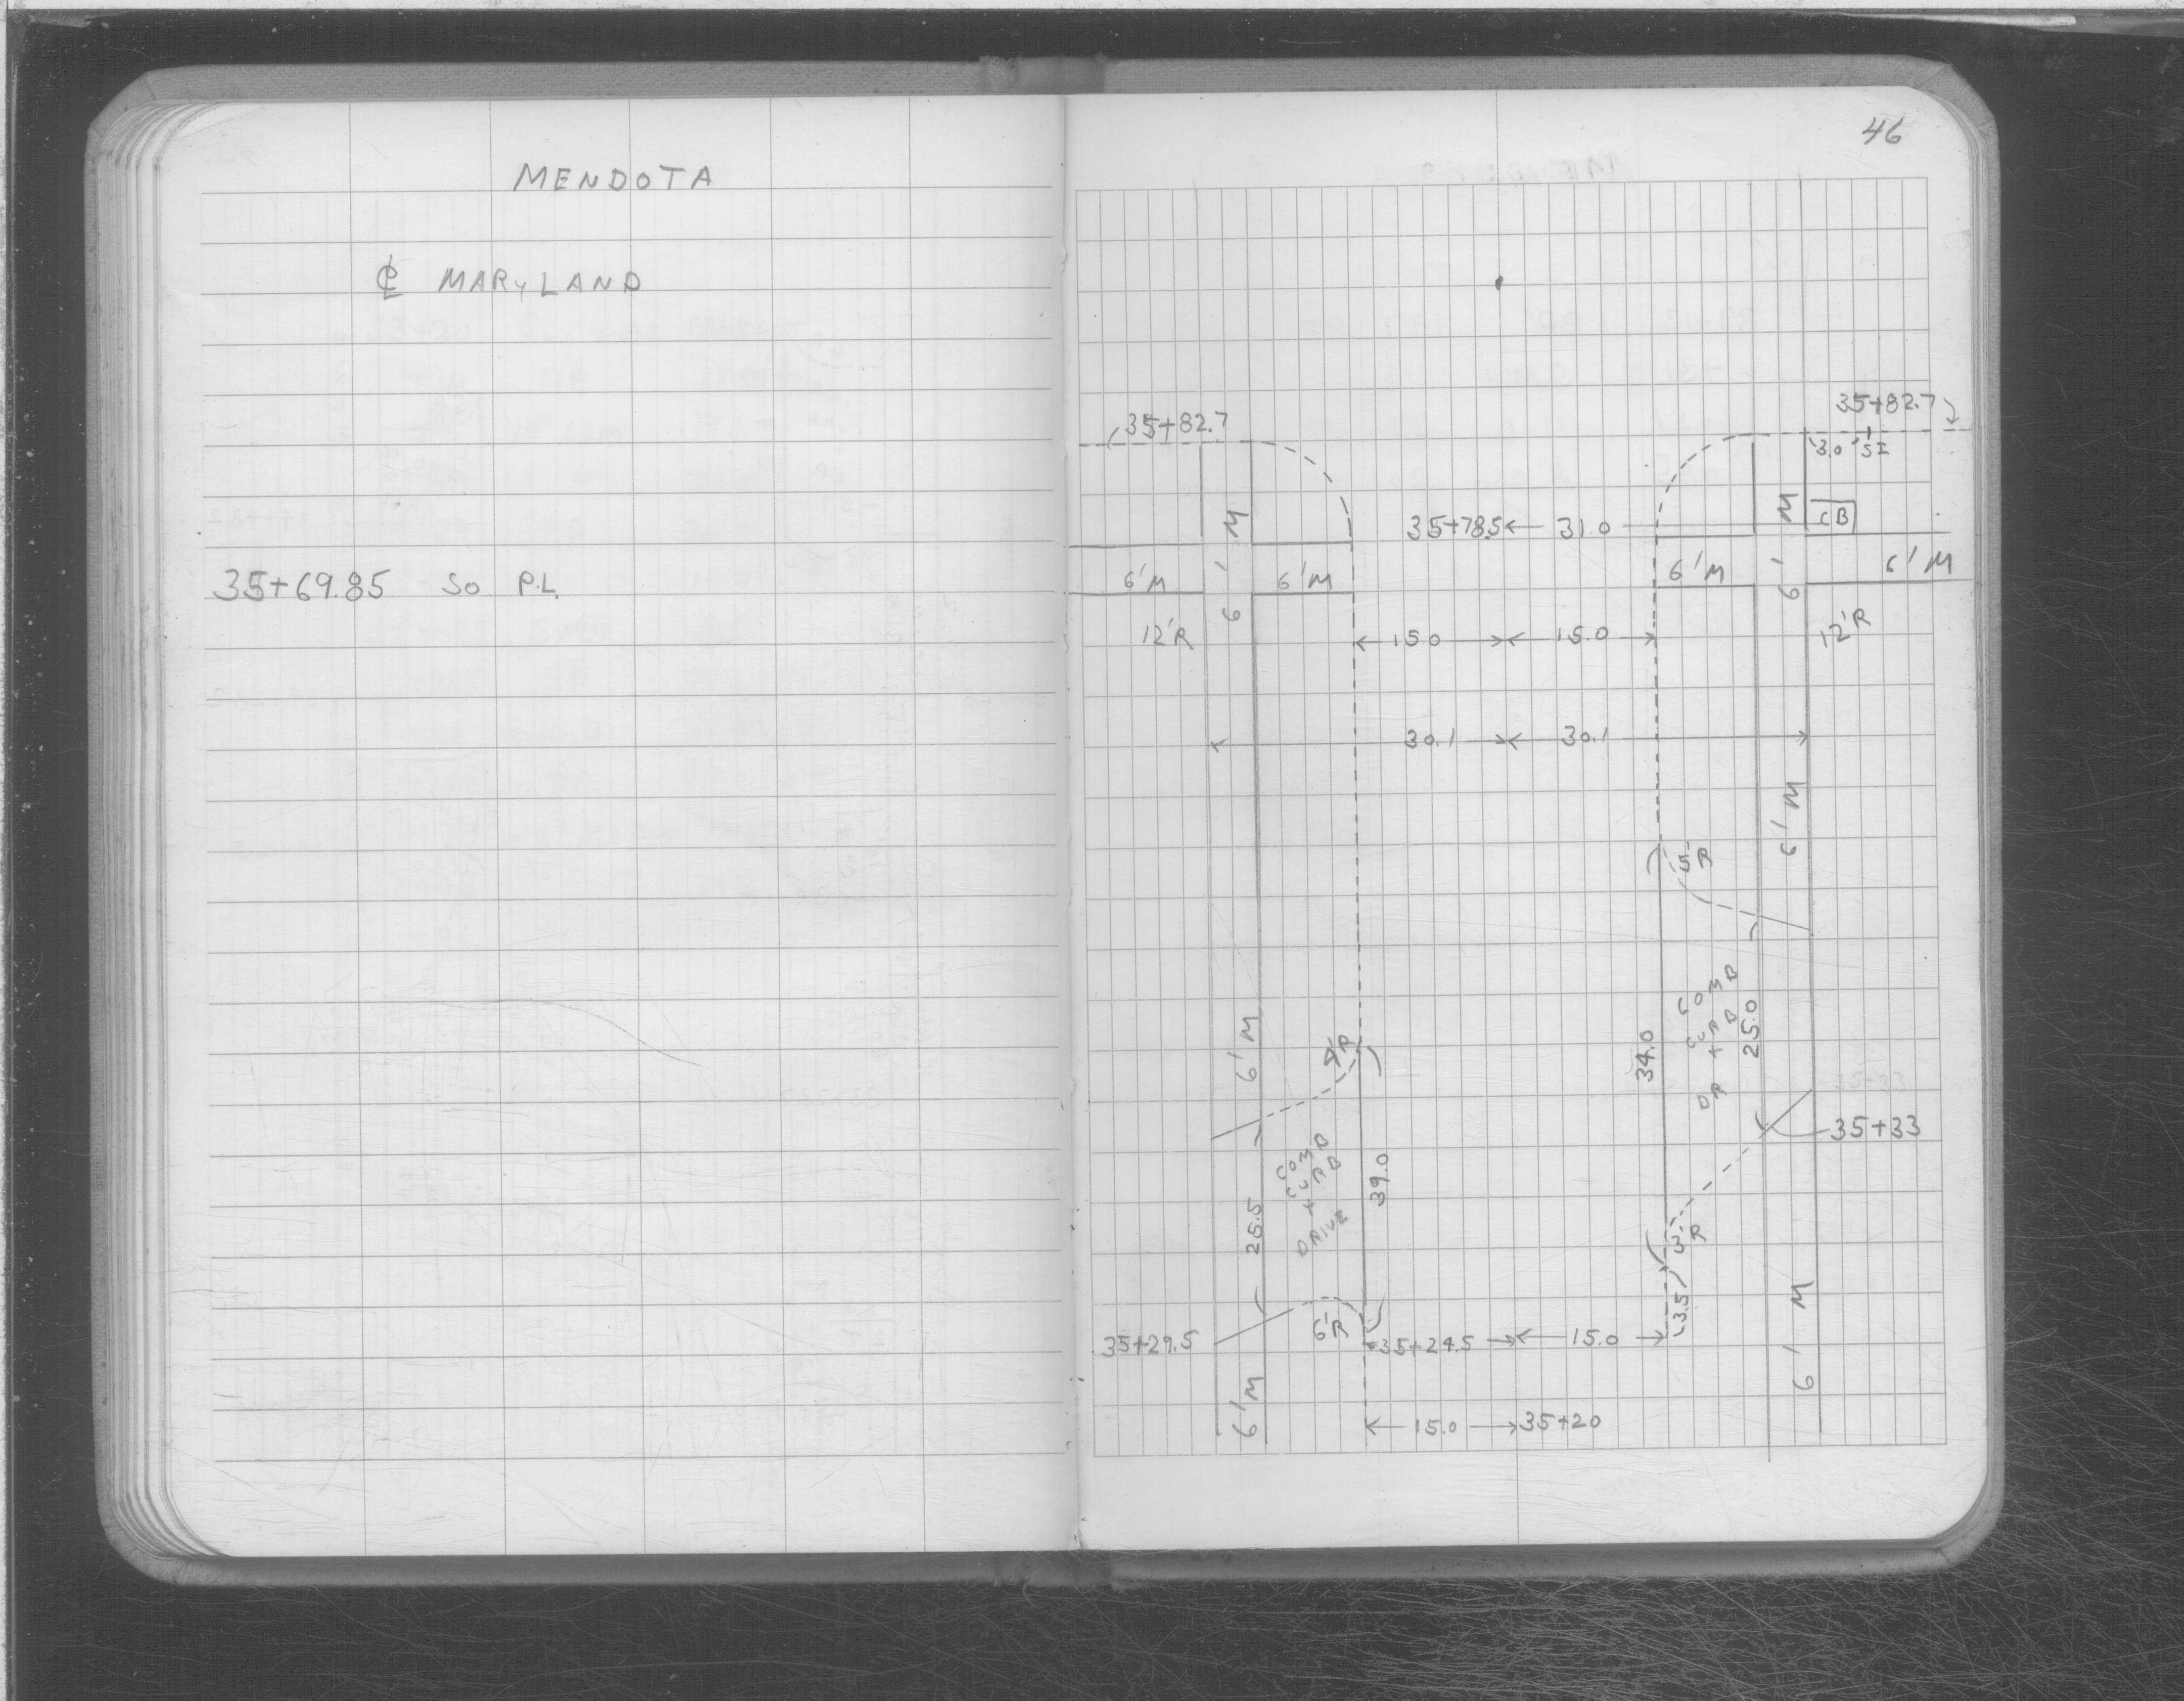 46
MENDOTA
℄ MARYLAND
35+82.7
35+82.7
3.0 SI
CB
35+78.5 ← 31.0
6'M
6'M
6'M
6'M
6'M
6'M
35+69.85 So P.L.
12'R
12'R
15.0
15.0
30.1
30.1
6'M
5R
COMB
CURB
+
DR
25.0
34.0
6'M
35+33
COMB
CURB
+
DRIVE
39.0
25.5
R
13.5
35+29.5
6'R
35+24.5
15.0
6'M
6'M
15.0
35+20